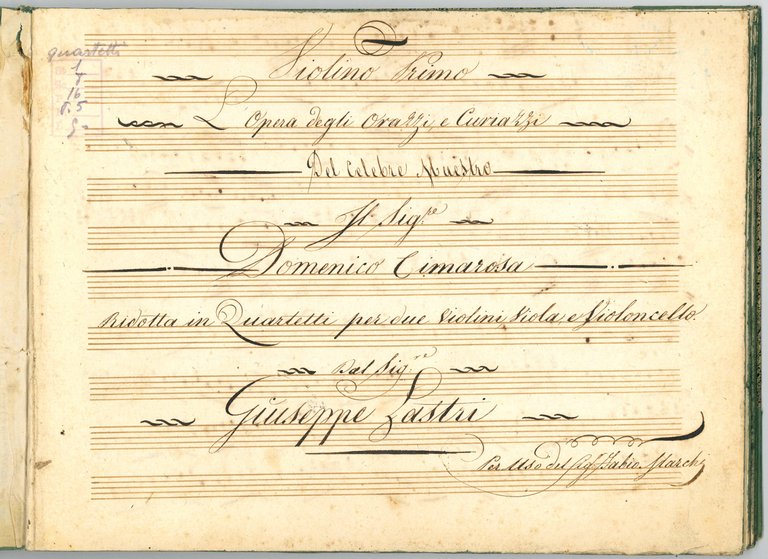 quartetti
1
Violino Primo
L'Opera degli Orazzi, e Curiazzi
Del Celebre Maestro
Il Sig.re
Domenico Cimarosa
Ridotta in Quartetti per due Violini, Viola, e Violoncello
Dal Sig.re
Giuseppe Lastri
Per Uso del Sig.r Fabio Marchi